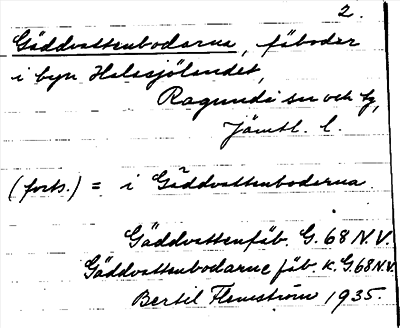 2.
Gäddvattenbodarna, fäboder
i byn Halasjölandet,
Ragunda sn och tg,
Jämtl. l.
(forts.) = i Gäddvattenboderna
Gäddvattenfäb. G. 68 N.V.
Gäddvattenbodarne fäb. K. G. 68 N.V.
Bertil Flemström 1935.